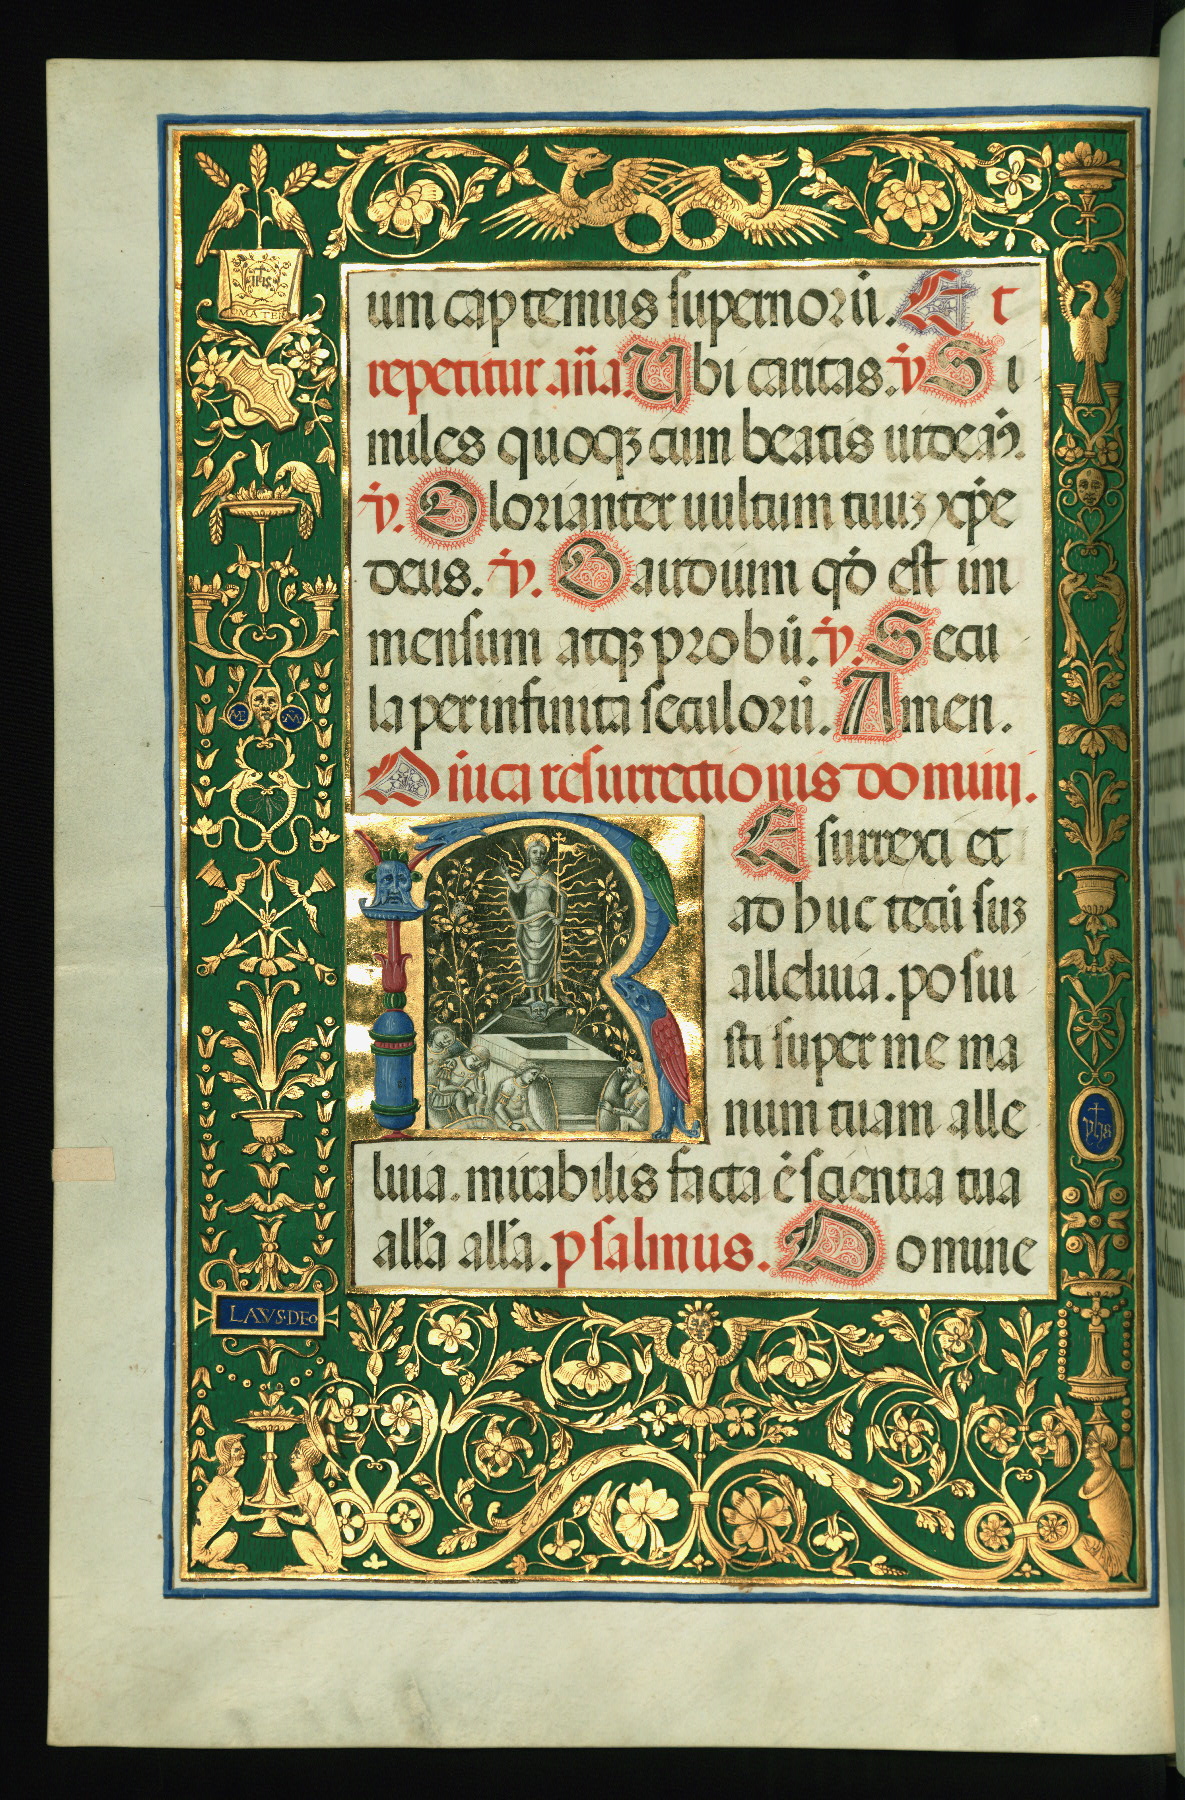 um captemus supernorū. Et
repetitur .an̄a. Ubi caritas. v̇ Si
miles quoqꝫ cum beatis uideam9.
v̇. Glorianter uultum tuuꝫ xp̄e
deus. v̇. Gaudium qd̄ est im
mensum atqꝫ probū. v̇. Secu
la per infinita seculorū. Amen.
Dīnica resurrectionis domini.
Resurrexi et
adhuc tecū suꝫ
alleluia. posui
sti super me ma
num tuam alle
luia. mirabilis facta ē scientia tua
all'a all'a. psalmus. Domine
IHS
MATER
M
LAVS·DEO
yhs